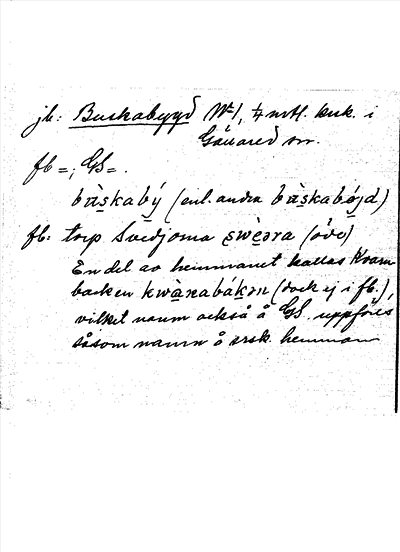 jb: Buskabygd No 1, 1/4 mtl. krk. i
Gällared sn.
fb =; GS =.
bùskabý (enl. andra bùskabójd)
fb: torp Svedjorna swèɔra (öde)
En del av hemmanet kallas Kvarn
backen kwàrnabákɔn (dock ej i fb.),
vilket namn också å GS. uppföres
såsom namn å ersk. hemman